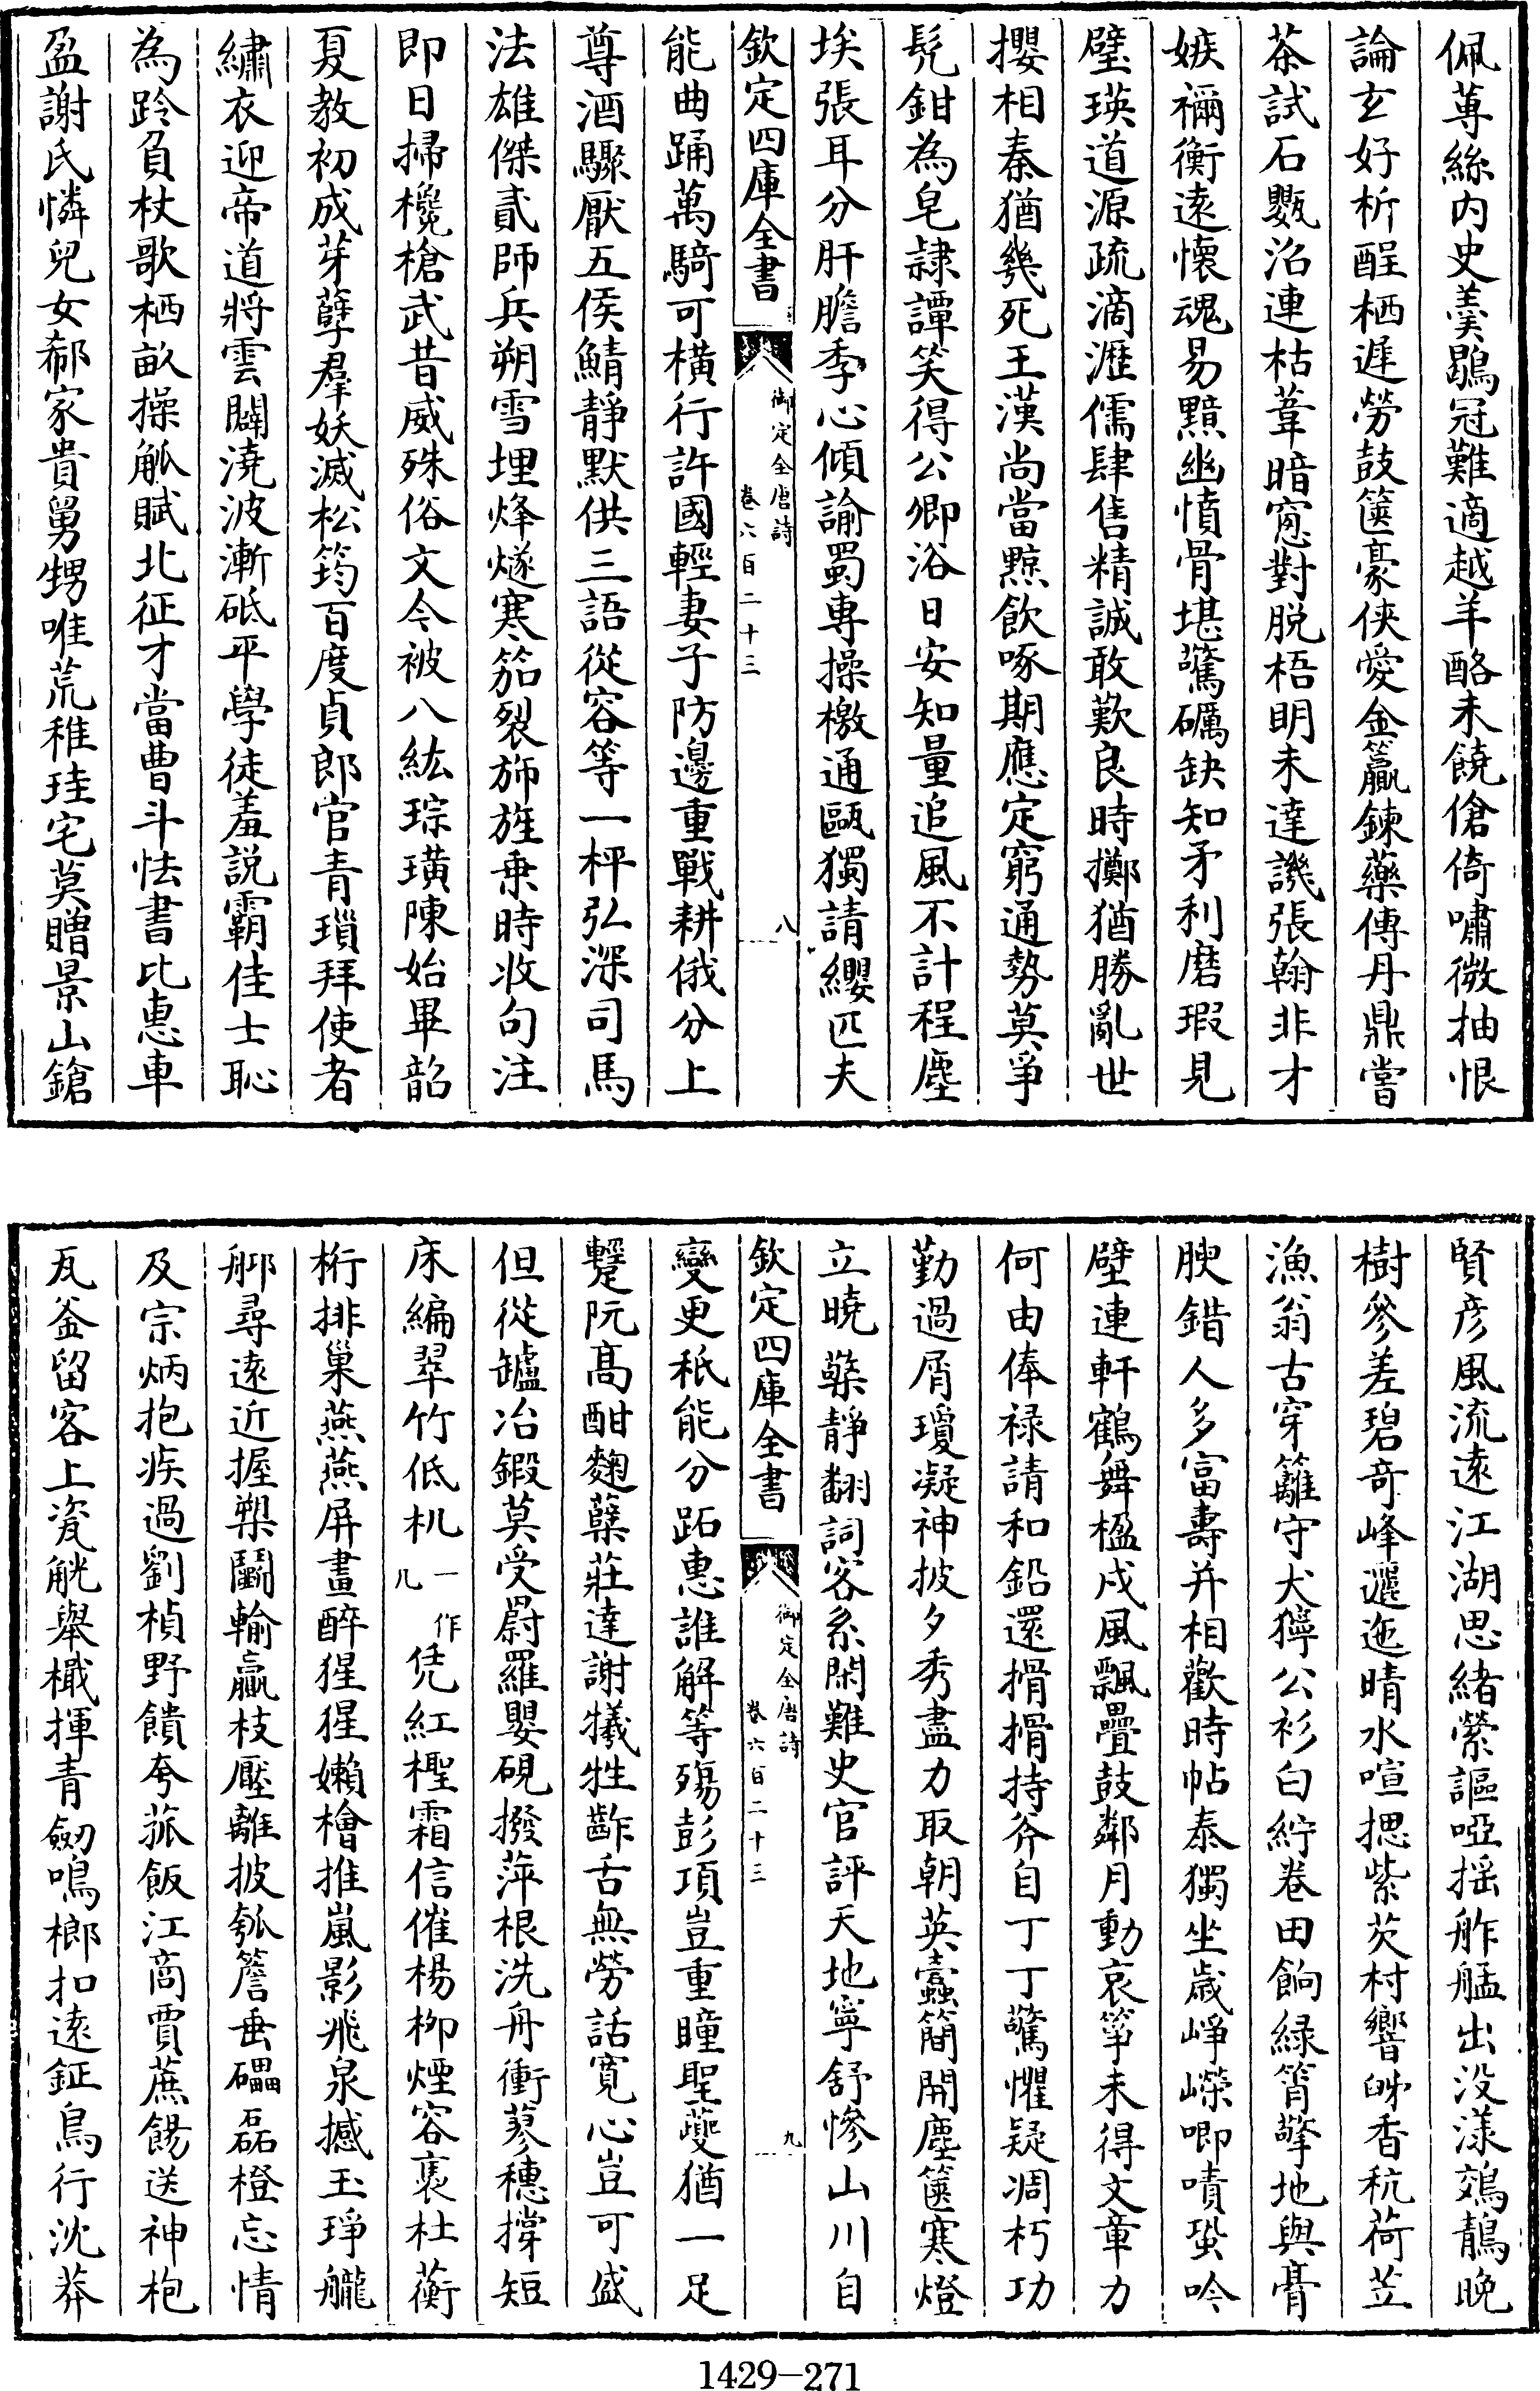 佩蓴絲內史羮鶡冠難適越羊酪未饒傖倚嘯微抽恨
論玄好析酲栖遲勞鼓篋豪俠愛金籯鍊藥傳丹鼎嘗
茶試石甖沼連枯葦暗窻對脱梧明未達譏張翰非才
嫉禰衡遠懷魂易黯幽憤骨堪驚礪缺知矛利磨瑕見
璧瑛道源疏滴瀝儒肆售精誠敢歎良時擲猶勝亂世
攖相秦猶幾死王漢尚當黥飲啄期應定窮通勢莫爭
髠鉗為皂隸譚笑得公卿浴日安知量追風不計程塵
埃張耳分肝膽季心傾諭蜀專操檄通甌獨請纓匹夫
欽定四庫全書
御定全唐詩
卷六百二十三
八
能曲踊萬騎可橫行許國輕妻子防邊重戰耕俄分上
尊酒驟厭五侯鯖靜默供三語從容等一枰弘深司馬
法雄傑貳師兵朔雪埋烽燧寒笳裂斾旌乗時收句注
即日掃欃槍武昔威殊俗文今被八紘琮璜陳始畢韶
夏教初成芽孽羣妖滅松筠百度貞郎官青瑣拜使者
繡衣迎帝道將雲闢澆波漸砥平學徒羞説霸佳士恥
為跉負杖歌栖畝操觚賦北征才當曹斗怯書比惠車
盈謝氏憐兒女郗家貴舅甥唯荒稚珪宅莫贈景山鎗
賢彦風流遠江湖思緒縈謳啞揺舴艋出没漾鵁鶄晚
樹參差碧奇峰邐迤晴水喧揌紫芡村響㕸香秔荷苙
漁翁古穿籬守犬獰公衫白紵卷田餉緑筲擎地與膏
腴錯人多富壽并相歡時帖泰獨坐歳崢嶸唧嘖蛩吟
壁連軒鶴舞楹戍風飄疊鼓鄰月動哀箏未得文章力
何由俸禄請和鉛還搰搰持斧自丁丁驚懼疑凋朽功
勤過屑瓊凝神披夕秀盡力取朝英蠹簡開塵篋寒燈
立曉檠靜翻詞客系閑難史官評天地寧舒慘山川自
欽定四庫全書
御定全唐詩
卷六百二十三
九
變更秖能分跖惠誰解等殤彭項豈重瞳聖夔猶一足
䠥阮高酣麴蘖莊達謝犧牲齚舌無勞話寛心豈可盛
但從罏冶鍛莫受罻羅嬰硯撥萍根洗舟衝蓼穗撐短
床編翠竹低机一作几凭紅檉霜信催楊栁煙容裛杜蘅
桁排巢燕燕屏畫醉猩猩嬾檜推嵐影飛泉撼玉琤艫
艀尋遠近握槊鬭輸贏枝壓離披瓠簷垂礧磊橙忘情
及宗炳抱疾過劉楨野饋夸菰飯江商賈蔗餳送神枹
瓦釡留客上瓷觥舉檝揮青劒鳴榔扣遠鉦鳥行沈莽
1429-271